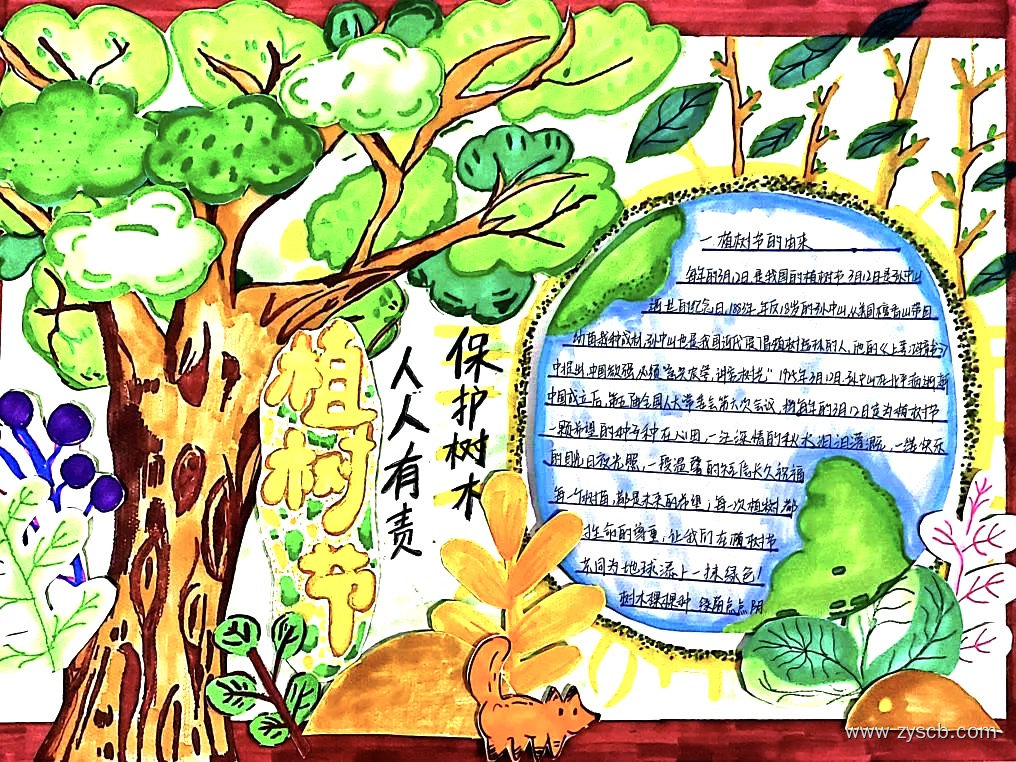 植树节
保护树木
人人有责
一 植树节的由来
每年的3月12日是我国的植树节 3月12日是孙中山
逝世的纪念日,1883年 年仅18岁的孙中山,从美国檀香山带回
幼苗栽种成材,孙中山也是我国近代 倡植树造林的人,他的《上李 书》
中提出,中国欲强 必须"急兴农学,讲究树艺" 1915年3月12日,孙中山在北平
中国成立后,第五届全国人大常委会第六次会议,将每年的3月12日定为植树节
一颗希望的种子种在心田,一汪深情的秋水汩汩落 ,一缕快乐
的阳光日夜光照,一段温馨的 长久祝福
每一个树苗,都是未来的希望;每一次植树 都
生命的尊重,让我们在植树节
共同为地球添上一抹绿色!
树木棵棵种 绿荫点点阴
www.zyscb.com